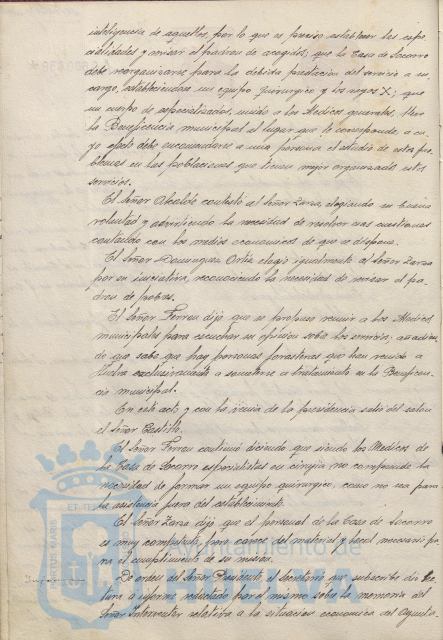 inteligencia de aquellos, por lo que es preciso establecer las espe
cialidades y revisar el padron de acogidos; que la Casa de Socorro
debe reorganizarse para la debida prestacion del servicio a su
cargo, estableciendose un equipo quirurgico y los rayos X; que
un cuerpo de especializados, unido a los Medicos generales, lleve
la Beneficencia municipal al lugar que le corresponde, a cu
yo efecto debe encomendarse a una persona el estudio de estos pro
blemas en las poblaciones que tienen mejor organizados estos
servicios.
El Señor Alcalde contestó al Señor Zarza, elogiando su buena
voluntad y advirtiendo la necesidad de resolver esas cuestiones
contando con los medios economicos de que se dispone.
El Señor Dominguez Ortiz elogió igualmente al Señor Zarza
por su iniciativa, reconociendo la necesidad de revisar el pa
dron de pobres.
El Señor Ferreu dijo que se propuso reunir a los Medicos
municipales para escuchar su opinión sobre los servicios, añadien
do que sabe que hay personas forasteras que han venido a
Huelva exclusivamente a someterse a tratamiento en la Beneficen
cia municipal.
En este acto y con la venia de la presidencia salió del salon
el Señor Castillo.
El Señor Ferreu continuó diciendo que siendo los Medicos de
la Casa de Socorro especialistas en cirugia no comprende la
necesidad de formar un equipo quirurgico, como no sea para
la asistencia fuera del establecimiento.
El Señor Zarza dijo que el personal de la Casa de Socorro
es muy competente, pero carece del material y local necesario pa
ra el cumplimiento de su mision.
De orden del Señor Presidente, el Secretario que subscribe dió lec
tura a informe redactado por el mismo sobre la memoria del
Señor Interventor relativa a la situacion economica del Ayunta
Ayuntamiento de
HUELVA
PORTUS MARIS ET TERRAE